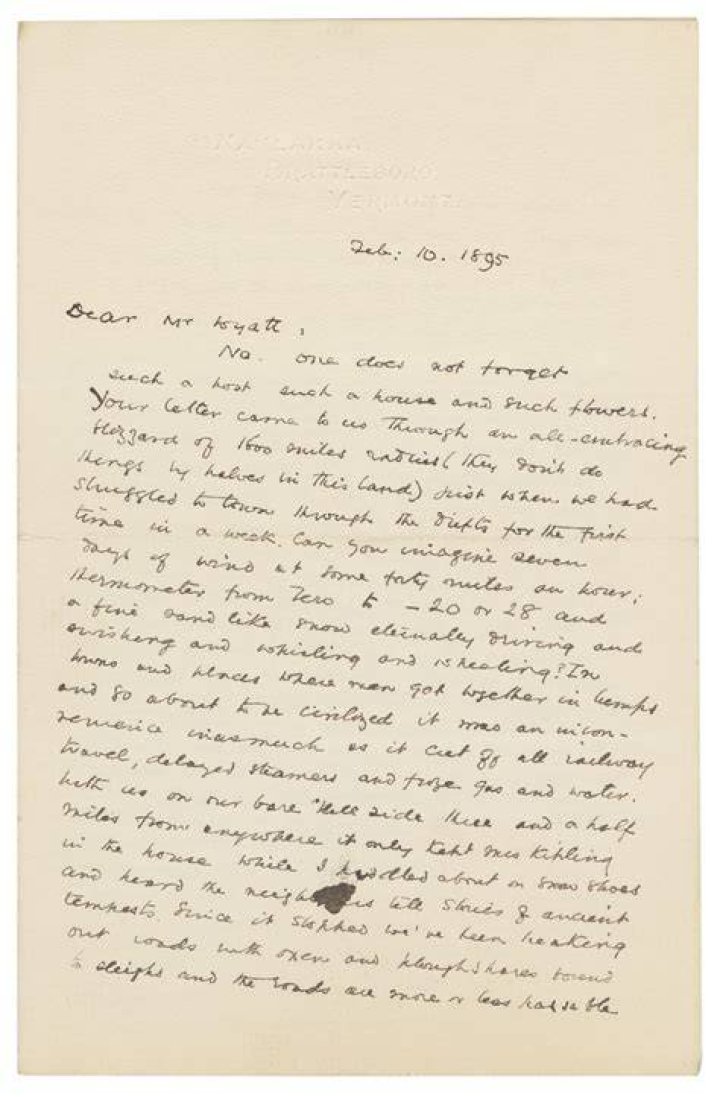 NAULAKHA
BRATTLEBORO
VERMONT
Feb: 10. 1895
Dear Mr Wyatt,
No. one does not forget
such a host such a house and such flowers.
Your letter came to us through an all-embracing
blizzard of 1600 miles radius (they don't do
things by halves in this land) just when we had
struggled to town through the drifts for the first
time in a week. Can you imagine seven
days of wind at some forty miles an hour;
thermometer from Zero to -20 or 28 and
a fine sand like snow eternally driving and
swishing and whirling and wheeling? In
towns and places where men got together in lumps
and so about to be civilized it was an incon-
venience inasmuch as it cut off all railway
travel, delayed steamers and froze gas and water.
with us on our bare hill side three and a half
miles from anywhere it only kept Mrs Kipling
in the house while I huddled about on snow shoes
and heard the neighbours tell stories of ancient
tempests. Since it stopped we've been breaking
out roads with oxen and ploughshares bound
to sleighs and the roads are more or less passable